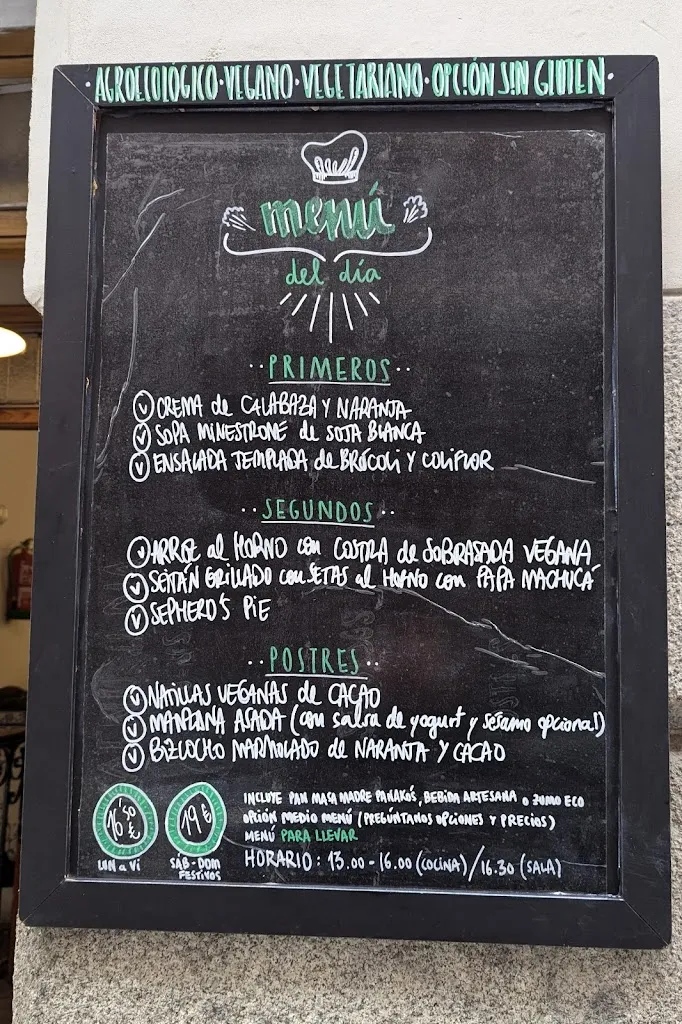 · AGROECOLÓGICO · VEGANO · VEGETARIANO · OPCIÓN SIN GLUTEN ·
menú
del día
·· PRIMEROS ··
Ⓥ CREMA de CALABAZA Y NARANJA
Ⓥ SOPA MINESTRONE de SOJA BLANCA
Ⓥ ENSALADA TEMPLADA de BRÓCOLI Y COLIFLOR
·· SEGUNDOS ··
Ⓥ ARROZ al HORNO con COSTRA de SOBRASADA VEGANA
Ⓥ SEITÁN GRILLADO con SETAS al HORNO con PAPA MACHUCÁ
Ⓥ SEPHERD'S PIE
·· POSTRES ··
Ⓥ NATILLAS VEGANAS de CACAO
Ⓥ MANZANA ASADA (con salsa de yogurt y sésamo opcional)
Ⓥ BIZCOCHO MARMOLADO de NARANJA Y CACAO
16'50 €
LUN a Vi
19 €
SÁB - DOM
FESTIVOS
INCLUYE PAN MASA MADRE PANAKÓS, BEBIDA ARTESANA o ZUMO ECO
OPCIÓN MEDIO MENÚ (PREGÚNTANOS OPCIONES Y PRECIOS)
MENÚ PARA LLEVAR
HORARIO: 13.00 - 16.00 (COCINA) / 16.30 (SALA)